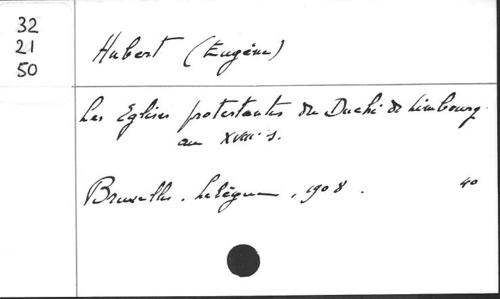 32
21
50
Hubert (Eugène)
Les Eglises protestantes du Duché de Limbourg
au XVIIIe s.
Bruxelles. Lebègue, 1908.
40